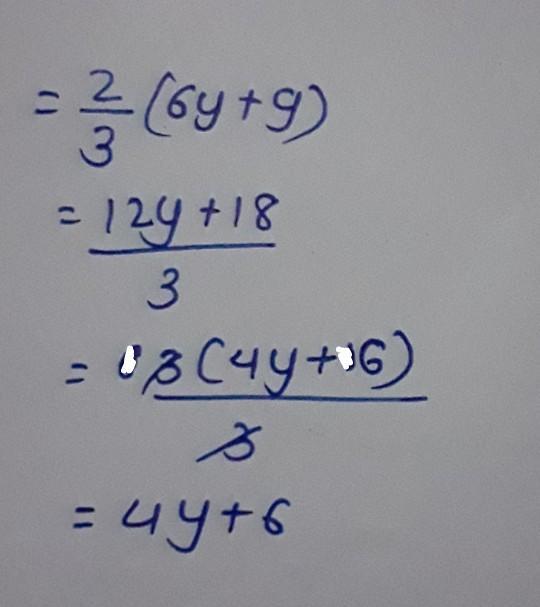 = 2/3 (6y+9)
= 12y+18
3
= 3(4y+6)
3
= 4y+6